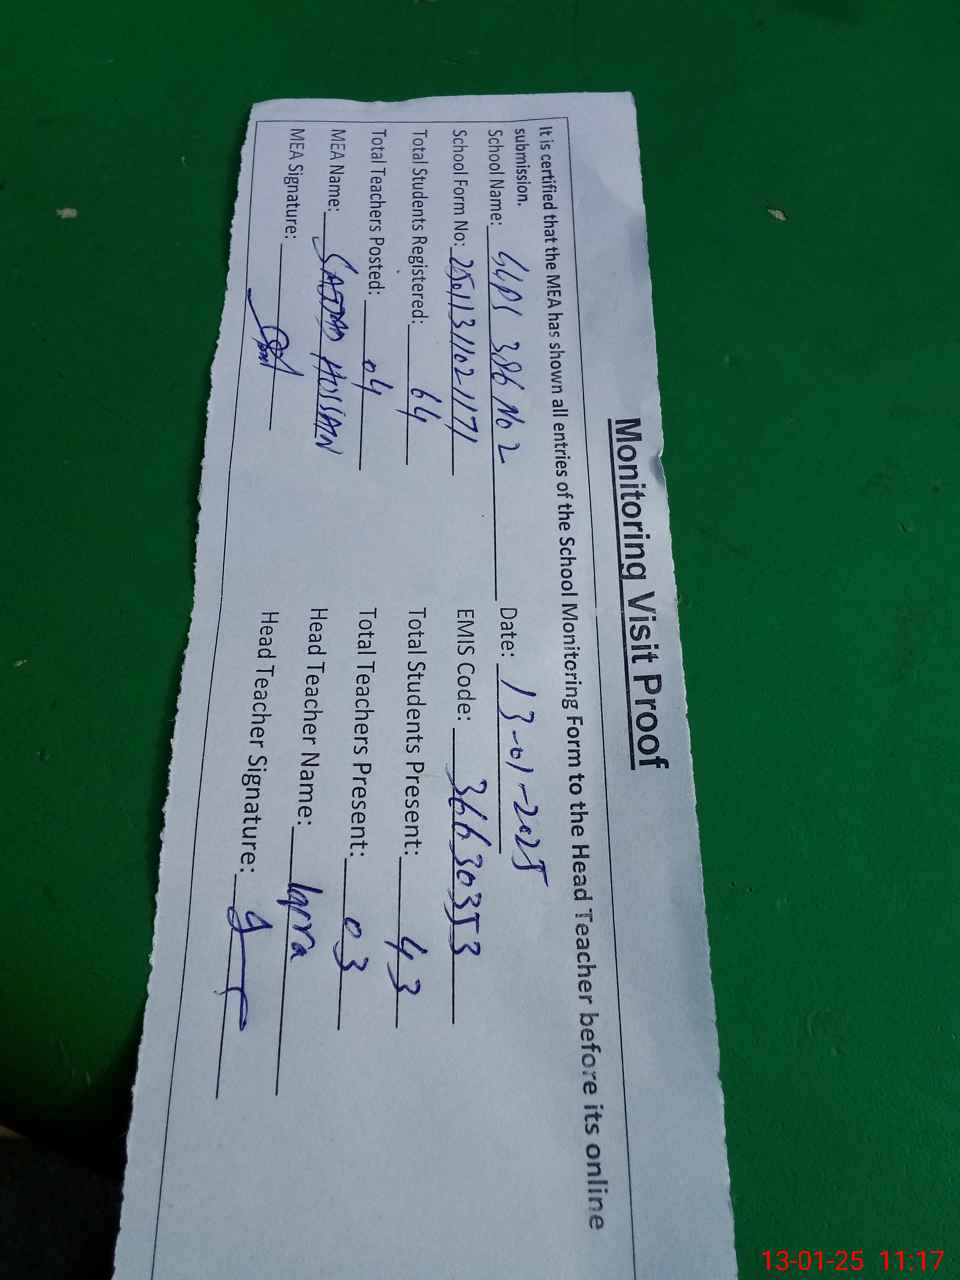 Monitoring Visit Proof
It is certified that the MEA has shown all entries of the School Monitoring Form to the Head Teacher before its online
submission.
School Name: GUPS 386 No 2 Date: 13-01-2025
School Form No: 25011311021171 EMIS Code: 36630353
Total Students Registered: 64 Total Students Present: 43
Total Teachers Posted: 04 Total Teachers Present: 03
MEA Name: SAJJAD HUSSAIN Head Teacher Name: Iqra
MEA Signature: Head Teacher Signature:
13-01-25 11:17